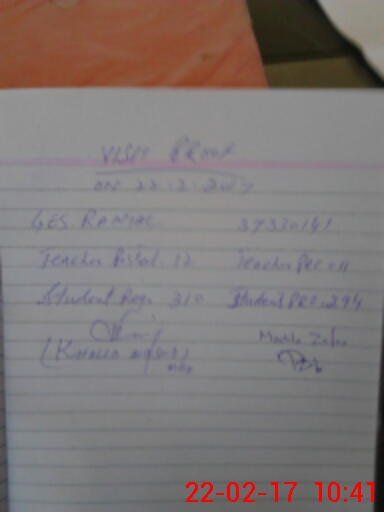 VISIT PROOF
ON 22.2.2017
GES. RANJAL 37330141
Teacher Postd. 12 Teacher Pre: 11
Student Reg. 310 Student PRE: 294
(KHALID
22-02-17 10:41